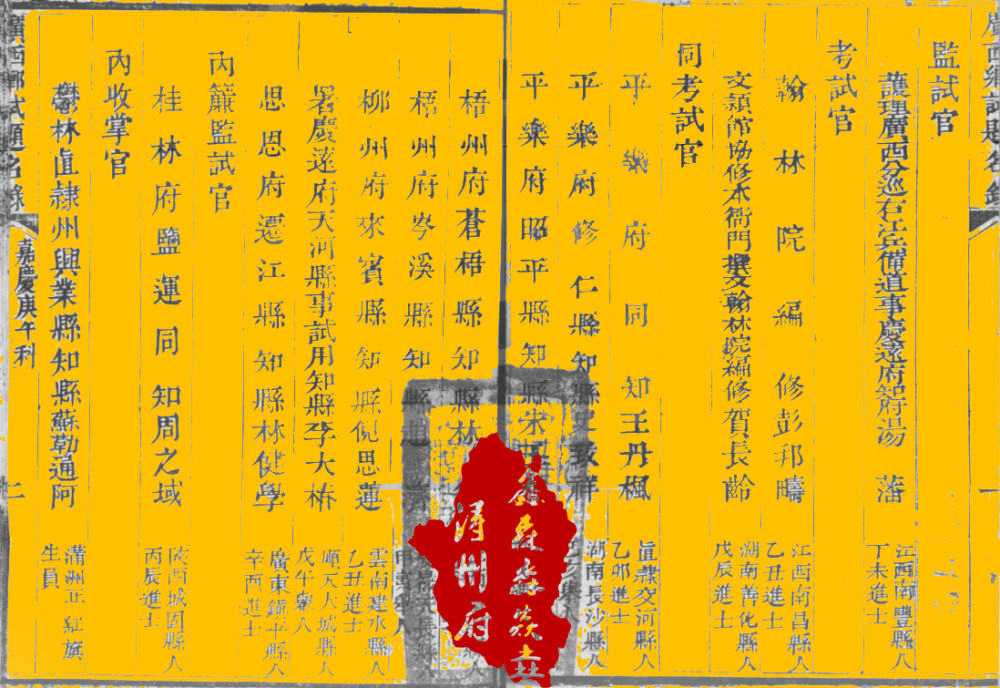 監試官
護理廣西分巡右江兵備道事慶遠府知府湯 藩
江西南豐縣人
丁未進士
考試官
翰林院編修彭邦疇
江西南昌縣人
乙丑進士
文頴館協修本衙門撰文翰林院編修賀長齡
湖南善化縣人
戊辰進士
同考試官
平樂府同知王丹楓
直隸交河縣人
乙卯進士
平樂府修仁縣知縣 致祥
湖南長沙縣人
平樂府昭平縣知縣宋
梧州府蒼梧縣知縣林
梧州府岑溪縣知縣
柳州府來賓縣知縣倪思蓮
雲南建水縣人
乙丑進士
署慶遠府天河縣事試用知縣李大椿
順天大城縣人
戊午舉人
思恩府遷江縣知縣林健學
廣東鎮平縣人
辛酉進士
內簾監試官
桂林府鹽運同知周之域
陜西城固縣人
丙辰進士
內收掌官
鬱林直隸州興業縣知縣蘇勒通阿
滿洲正紅旗
生員
廣西鄉試題名錄
嘉慶庚午科
二
廣西鄉試題名錄
一
鑫森淼焱垚
潯州府